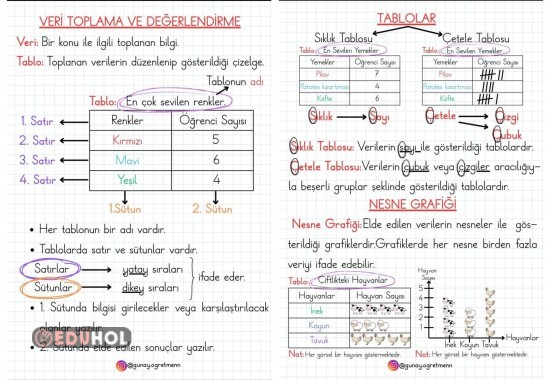 VERİ TOPLAMA VE DEĞERLENDİRME
Veri: Bir konu ile ilgili toplanan bilgi.
Tablo: Toplanan verilerin düzenlenip gösterildiği çizelge.
Tablonun adı
Tablo: En çok sevilen renkler
1. Satır Renkler Öğrenci Sayısı
2. Satır Kırmızı 5
3. Satır Mavi 6
4. Satır Yeşil 4
1.Sütun 2. Sütun
• Her tablonun bir adı vardır.
• Tablolarda satır ve sütunlar vardır.
Satırlar yatay sıraları
ifade eder.
Sütunlar dikey sıraları
• 1. Sütunda bilgisi girilecekler veya karşılaştırılacak
olanlar yazılır.
EDUHOL
• 2. Sütunda elde edilen sonuçlar yazılır.
@gunayogretmenn
TABLOLAR
Sıklık Tablosu
Tablo: En Sevilen Yemekler
Yemekler Öğrenci Sayısı
Pilav 7
Patates kızartması 4
Köfte 6
Çetele Tablosu
Tablo: En Sevilen Yemekler
Yemekler Öğrenci Sayısı
Pilav
Patates kızartması
Köfte
Sıklık Sayı
Çetele Çizgi
Çubuk
Sıklık Tablosu: Verilerin sayı ile gösterildiği tablolardır.
Çetele Tablosu: Verilerin çubuk veya çizgiler aracılığıy-
la beşerli gruplar şeklinde gösterildiği tablolardır.
NESNE GRAFİĞİ
Nesne Grafiği: Elde edilen verilerin nesneler ile gös-
terildiği grafiklerdir.Grafiklerde her nesne birden fazla
veriyi ifade edebilir.
Tablo: Çiftlikteki Hayvanlar
Hayvanlar Hayvan Sayısı
İnek
Koyun
Tavuk
Not: Her görsel bir hayvanı göstermektedir.
Hayvan
Sayısı
5
4
3
2
1
İnek Koyun Tavuk
Hayvanlar
Not: Her görsel bir hayvanı göstermektedir.
@gunayogretmenn